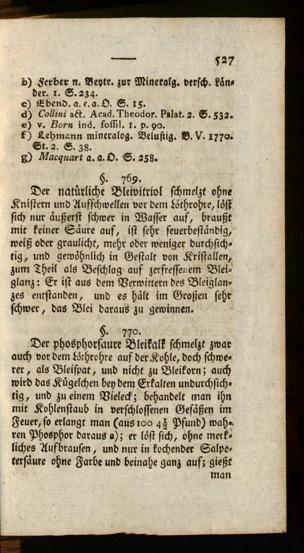 527
b) Ferber n. Beytr. zur Mineralg. versch. Län-
der. 1. S. 234.
c) Ebend. a. e. a. O. S. 15.
d) Collini act. Acad. Theodor. Palat. 2. S. 532.
e) v. Born ind. fossil. 1. p. 90.
f) Lehmann mineralog. Belustig. B. V. 1770.
St. 2. S. 38.
g) Macquart a. a. O. S. 258.
§. 769.
Der natürliche Bleivitriol schmelzt ohne
Knistern und Aufschwellen vor dem Löthrohre, löst
sich nur äußerst schwer in Wasser auf, braußt
mit keiner Säure auf, ist sehr feuerbeständig,
weiß oder graulicht, mehr oder weniger durchsich-
tig, und gewöhnlich in Gestalt von Kristallen,
zum Theil als Beschlag auf zerfressenem Blei-
glanz: Er ist aus dem Verwittern des Bleiglan-
zes entstanden, und es hält im Großen sehr
schwer, das Blei daraus zu gewinnen.
§. 770.
Der phosphorsaure Bleikalk schmelzt zwar
auch vor dem Löthrohre auf der Kohle, doch schwe-
rer, als Bleispat, und nicht zu Bleikorn; auch
wird das Kügelchen bey dem Erkalten undurchsich-
tig, und zu einem Vieleck; behandelt man ihn
mit Kohlenstaub in verschlossenen Gefäßen im
Feuer, so erlangt man (aus 100 4¾ Pfund) wah-
ren Phosphor daraus a); er löst sich, ohne merk-
liches Aufbrausen, und nur in kochender Salpe-
tersäure ohne Farbe und beinahe ganz auf; gießt
man